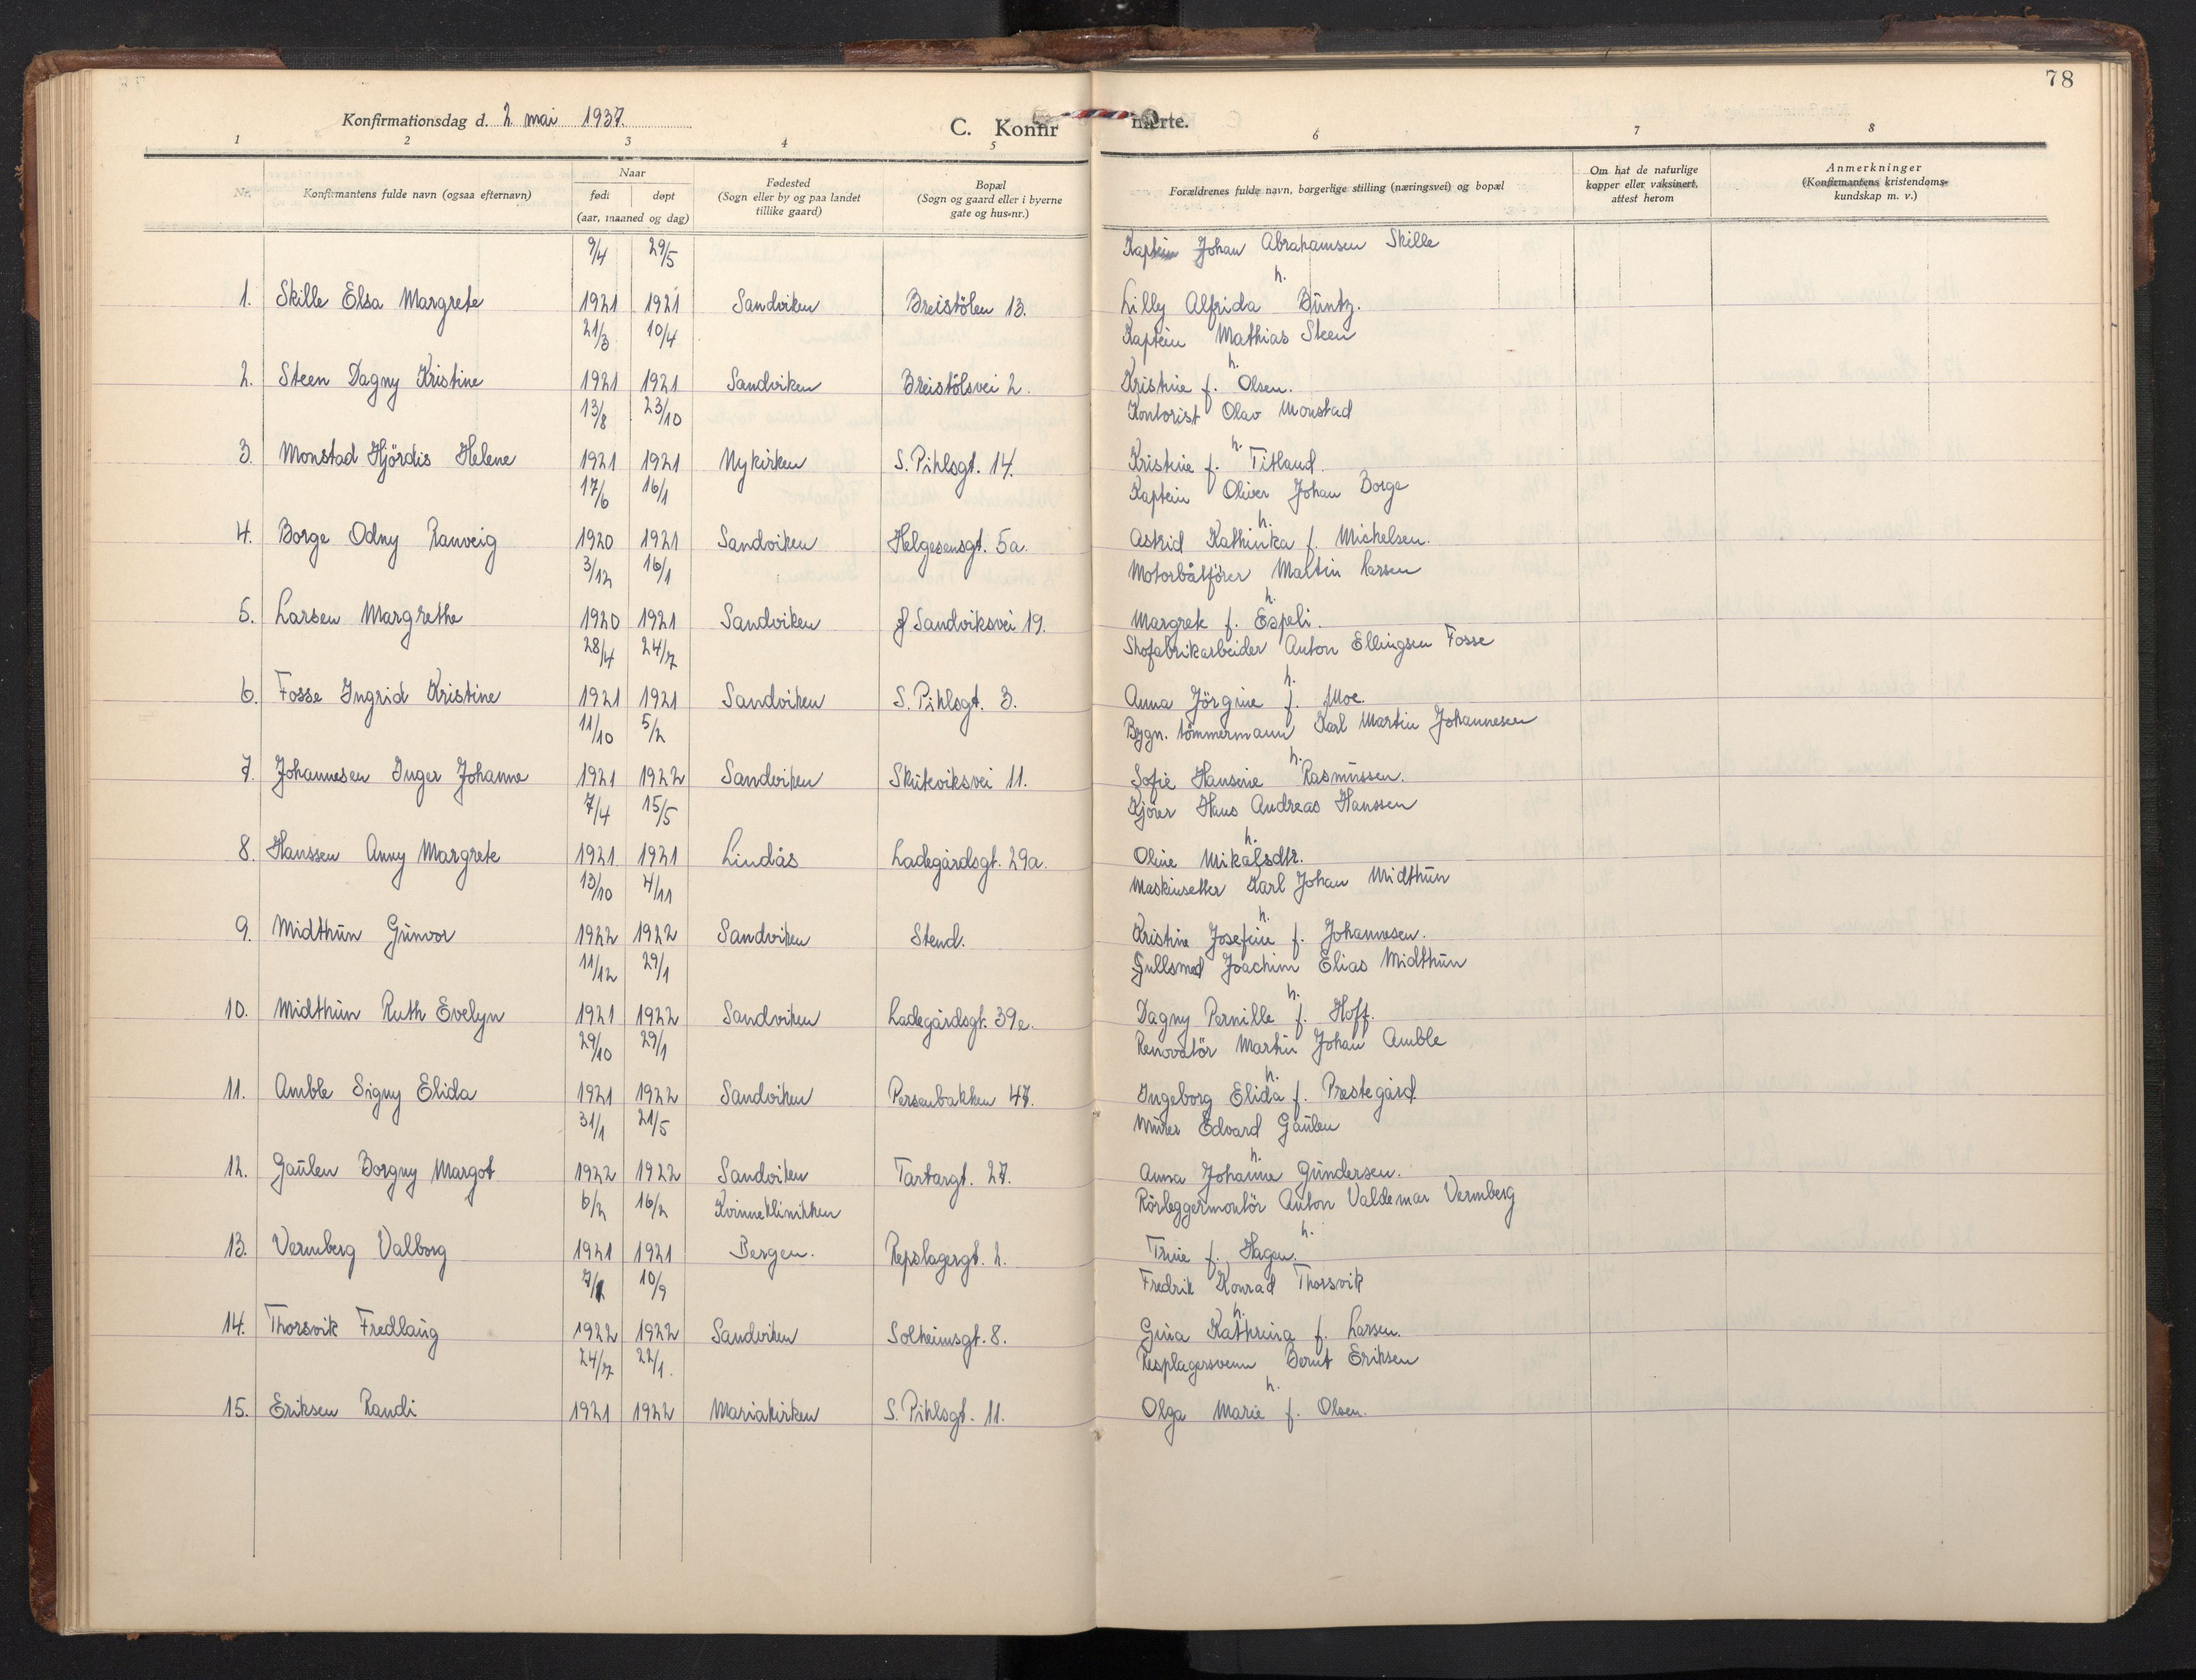 78
Konfirmationsdag d. 2. mai 1937.
C. Konfir merte.
1 2 3 4 5 6 7 8
Nr.
Konfirmantens fulde navn (ogsaa efternavn)
Naar
født døpt
(aar, maaned og dag)
Fødested
(Sogn eller by og paa landet
tillike gaard)
Bopæl
(Sogn og gaard eller i byerne
gate og hus-nr.)
Forældrenes fulde navn, borgerlige stilling (næringsvei) og bopæl
Om hat de naturlige
kopper eller vaksinert,
attest herom
Anmerkninger
(Konfirmantens kristendoms-
kundskap m. v.)
9/4 29/5 Kaptein Johan Abrahamsen Skille
h.
1. Skille Elsa Margrete 1921 1921 Sandviken Breistölen 13. Lilly Alfrida Büntz.
21/3 10/4 Kaptein Mathias Steen
h.
2. Steen Dagny Kristine 1921 1921 Sandviken Breistölsvei 2. Kristine f. Olsen.
13/8 23/10 Kontorist Olav Monstad
h.
3. Monstad Hjördis Helene 1921 1921 Nykirken S. Pihlsgt. 14. Kristine f. Titland.
17/6 16/1 Kaptein Oliver Johan Borge
h.
4. Borge Odny Ranveig 1920 1921 Sandviken Helgesensgt. 5a. Astrid Kathinka f. Michelsen.
3/12 16/1 Motorbåtförer Martin Larsen
h.
5. Larsen Margrethe 1920 1921 Sandviken Sandviksvei 19. Margrete f. Espeli.
28/4 24/7 Skofabrikarbeider Anton Ellingsen Fosse
h.
6. Fosse Ingrid Kristine 1921 1921 Sandviken S. Pihlsgt. 3. Anna Jörgine f. Moe.
11/10 5/2 Bygn. tömmermann Karl Martin Johannesen
h.
7. Johannesen Inger Johanne 1921 1922 Sandviken Skuteviksvei 11. Sofie Hansine Rasmussen.
7/4 15/5 Kjörer Hans Andreas Hanssen
h.
8. Hanssen Anny Margrete 1921 1921 Lindås Ladegårdsgt. 29a. Oline Mikalsdtr.
13/10 4/11 Maskinsetter Karl Johan Midthün
h.
9. Midthün Günvor 1922 1922 Sandviken Stend. Kristine Josefine f. Johannesen.
11/12 29/1 Gullsmed Joachim Elias Midthün
h.
10. Midthün Ruth Evelyn 1921 1922 Sandviken Ladegårdsgt. 39e. Dagny Pernille f. Hoff.
29/10 29/1 Renovatör Martin Johan Amble
h.
11. Amble Signy Elida 1921 1922 Sandviken Persenbakken 47. Ingeborg Elida f. Prestegård
31/1 21/5 Murer Edvard Gaülen
h.
12. Gaülen Borgny Margot 1922 1922 Sandviken Tartargt. 27. Anna Johanne Gündersen.
6/2 16/2 Kvinneklinikken Rörleggermontör Anton Valdemar Vermberg
h.
13. Vermberg Valborg 1921 1921 Bergen. Repslagergt. 2. Trine f. Hagen.
10/9 Fredrik Konrad Thorsvik
h.
14. Thorsvik Fredlaüg 1922 1922 Sandviken Solheimsgt. 8. Gina Kathrina f. Larsen.
24/7 22/1. Resplagersvenn Bernt Eriksen
h.
15. Eriksen Randi 1921 1922 Mariakirken S. Pihlsgt. 11. Olga Marie f. Olsen.